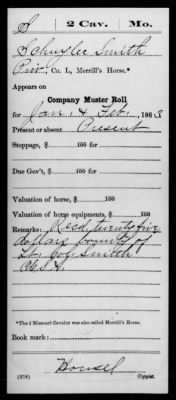 S | 2 Cav. | Mo.
Schuyler Smith
Priv., Co. L, Merrill's Horse.*
Appears on
Company Muster Roll
for Jan & Feb, 1863
Present or absent Present
Stoppage, $ 100 for
Due Gov't, $ 100 for
Valuation of horse, $ 100
Valuation of horse equipments, $ 100
Remarks: Recd twenty five
dollars bounty of
Lt. Col. Smith
U.S.A.
*The 2 Missouri Cavalry was also called Merrill's Horse.
Book mark:
Housel
(358) Copyist.